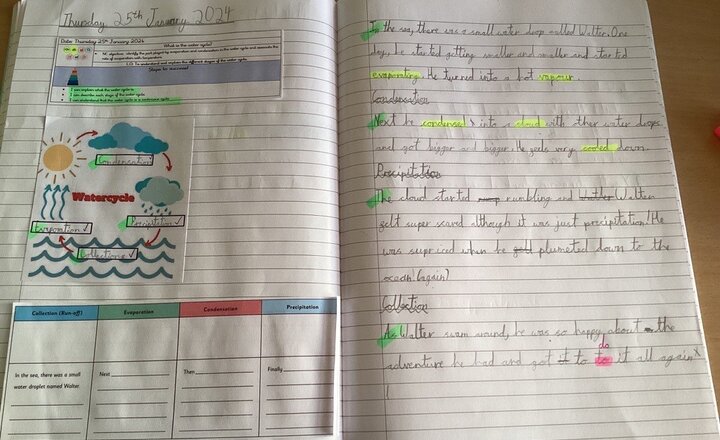 Thursday 25th January 2024
Date: Thursday 25th January 2024
What is the water cycle?
NC objective: Identify the part played by evaporation and condensation in the water cycle and associate the rate of evaporation with temperature.
LO: To understand and explain the different stages of the water cycle.
Steps to success
I can explain what the water cycle is.
I can describe each stage of the water cycle.
I can understand that the water cycle is a continuous cycle.
Condensation
Watercycle
Precipitation ✓
Evaporation ✓
Collection ✓
Collection (Run-off)
Evaporation
Condensation
Precipitation
In the sea, there was a small
water droplet named Walter.
Next
Then
Finally
In the sea, there was a small water drop called Walter. One
day, he started getting smaller and smaller and started
evaporating. He turned into a hot vapour.
Condensation
Next he condensed into a cloud with other water drops
and got bigger and bigger. He feels very cooled down.
Precipitation
The cloud started rumbling and Walter
felt super scared although it was just precipitation! He
was supriced when he plumeted down to the
ocean! (again)
Collection
As Walter swam around, he was so happy about the
do
adventure he had and got to to it all again